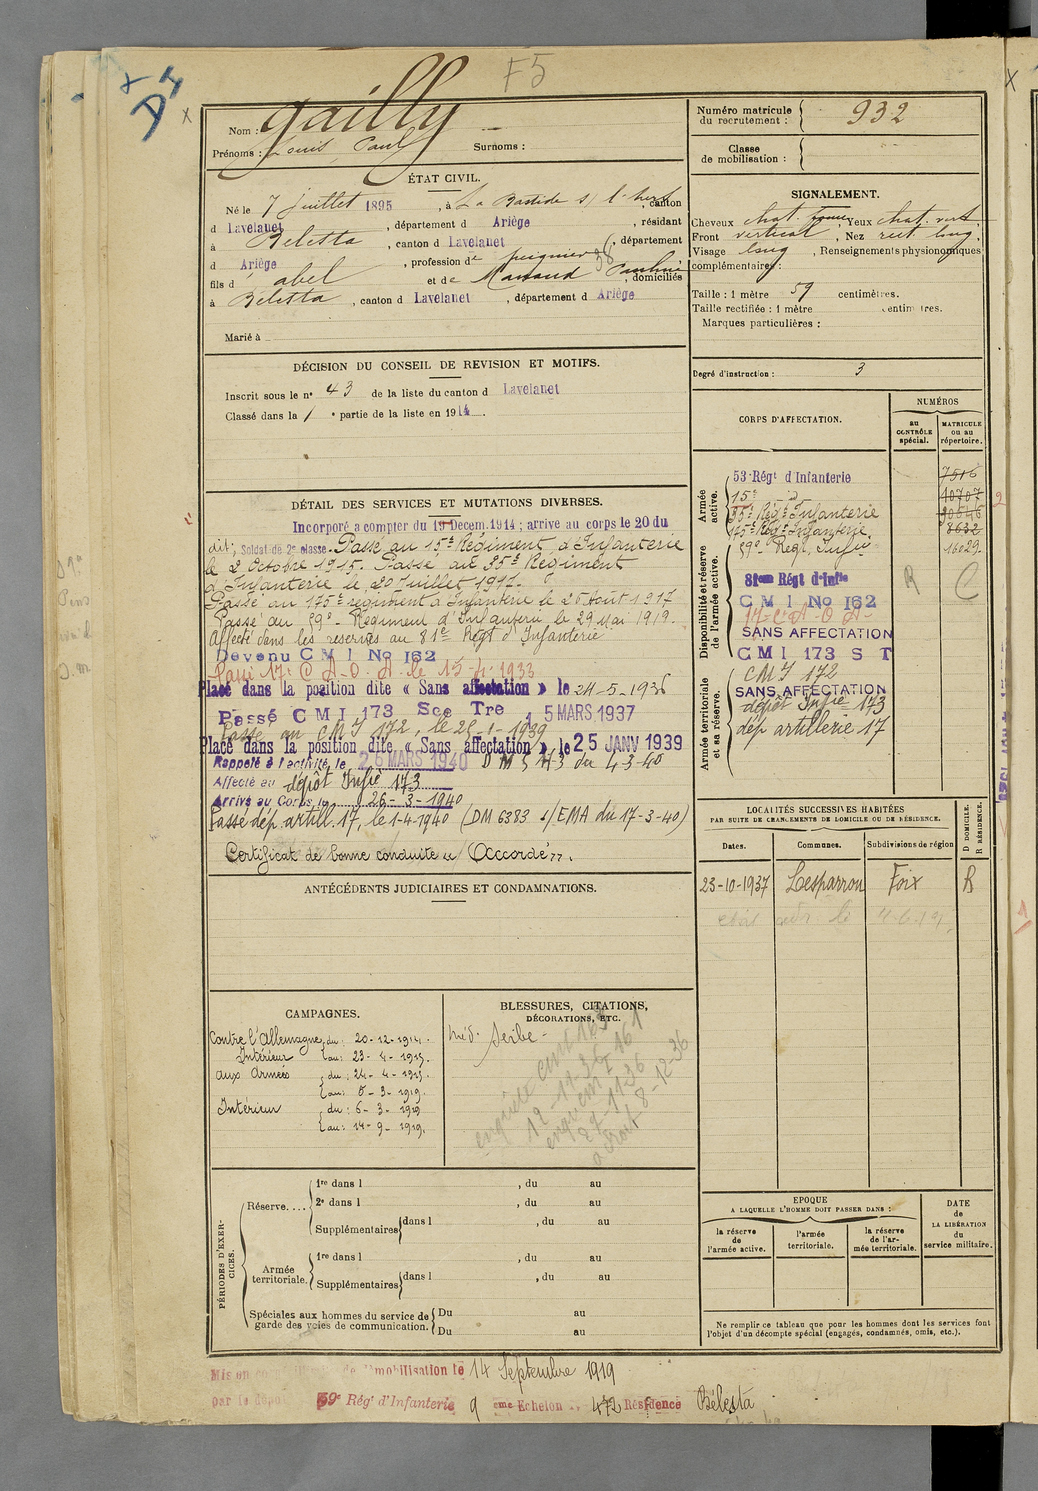 F5
Nom : Gailly
Prénoms : Louis Paul Surnoms :
Numéro matricule du recrutement : 932
Classe de mobilisation :
ÉTAT CIVIL.
Né le 7 juillet 1895, à La Bastide s/ l'hers, canton
d Lavelanet, département d Ariège, résidant
à Belesta, canton d Lavelanet, département
d Ariège, profession de peigneur 38
fils d abel et de Pauline, domiciliés
à Belesta, canton d Lavelanet, département d Ariège
Marié à
SIGNALEMENT.
Cheveux chat. Yeux chat. vert
Front vertical, Nez rect. long.
Visage long, Renseignements physionomiques
complémentaires :
Taille : 1 mètre 59 centimètres.
Taille rectifiée : 1 mètre centimètres.
Marques particulières :
Degré d'instruction : 3
DÉCISION DU CONSEIL DE REVISION ET MOTIFS.
Inscrit sous le n° 43 de la liste du canton d Lavelanet
Classé dans la 1 e partie de la liste en 1914.
CORPS D'AFFECTATION.
NUMÉROS
au CONTRÔLE spécial.
MATRICULE ou au répertoire.
Armée active.
53e Régt d'Infanterie 7516
15e d° 10707
35e Régt Infanterie 20546
175e Régt Infanterie 8632
59e Régt Infie 16029
Disponibilité et réserve de l'armée active.
81eme Régt d'Infie R C
C M I No 162
17e C A O A
SANS AFFECTATION
CMI 173 S T
Armée territoriale et sa réserve.
CMI 172
SANS AFFECTATION
dépôt Infie 173
dép artillerie 17
DÉTAIL DES SERVICES ET MUTATIONS DIVERSES.
Incorporé a compter du 19 Decem. 1914 ; arrivé au corps le 20 du
dit ; Soldat de 2e classe. Passé au 15e Régiment d'Infanterie
le 2 Octobre 1915. Passé au 35e Régiment
d'Infanterie le 20 Juillet 1917.
Passé au 175e régiment d'Infanterie le 25 Août 1917
Passé au 59e Régiment d'Infanterie le 29 Mai 1919.
Affecté dans les réserves au 81e Régt d'Infanterie
Devenu C M I No 162
Passé 17e C A O A le 15-4-1933
Placé dans la position dite « Sans affectation » le 24-5-1936
Passé C M I 173 Sce Tre 15 MARS 1937
Passé au CMI 172, le 25-1-1939
Placé dans la position dite « Sans affectation » le 25 JANV 1939
Rappelé à l'activité le 26 MARS 1940 DM 5443 du 4-3-40
Affecté au dépôt Infie 173
Arrivé au Corps le 26-3-1940
Passé dép. artill. 17, le 1-4-1940 (DM 6383 1/EMA du 17-3-40)
Certificat de bonne conduite « Accordé ».
ANTÉCÉDENTS JUDICIAIRES ET CONDAMNATIONS.
LOCALITÉS SUCCESSIVES HABITÉES
PAR SUITE DE CHANGEMENTS DE DOMICILE OU DE RÉSIDENCE.
Dates. Communes. Subdivisions de région
D DOMICILE. R RÉSIDENCE.
23-10-1937 Lesparrou Foix R
CAMPAGNES.
Contre l'Allemagne
Intérieur du : 20-12-1914.
au : 23-4-1915.
aux Armées du : 24-4-1915.
au : 5-3-1919.
Intérieur du : 6-3-1919
au : 14-9-1919.
BLESSURES, CITATIONS,
DÉCORATIONS, ETC.
méd. Serbe -
enquête CMI 163
12-11-36
enqu CMI 161
27-11-36
8-12-36
PÉRIODES D'EXERCICES.
Réserve....
1re dans l , du au
2e dans l , du au
Supplémentaires dans l , du au
Armée territoriale.
1re dans l , du au
Supplémentaires dans l , du au
Spéciales aux hommes du service de garde des voies de communication.
Du au
Du au
EPOQUE
A LAQUELLE L'HOMME DOIT PASSER DANS :
la réserve de l'armée active.
l'armée territoriale.
la réserve de l'armée territoriale.
DATE de LA LIBÉRATION du service militaire.
Ne remplir ce tableau que pour les hommes dont les services font
l'objet d'un décompte spécial (engagés, condamnés, omis, etc.).
Mis en de démobilisation le 14 Septembre 1919
par le dépôt 59e Régt d'Infanterie 9 eme Echelon 472 Résidence Bélesta